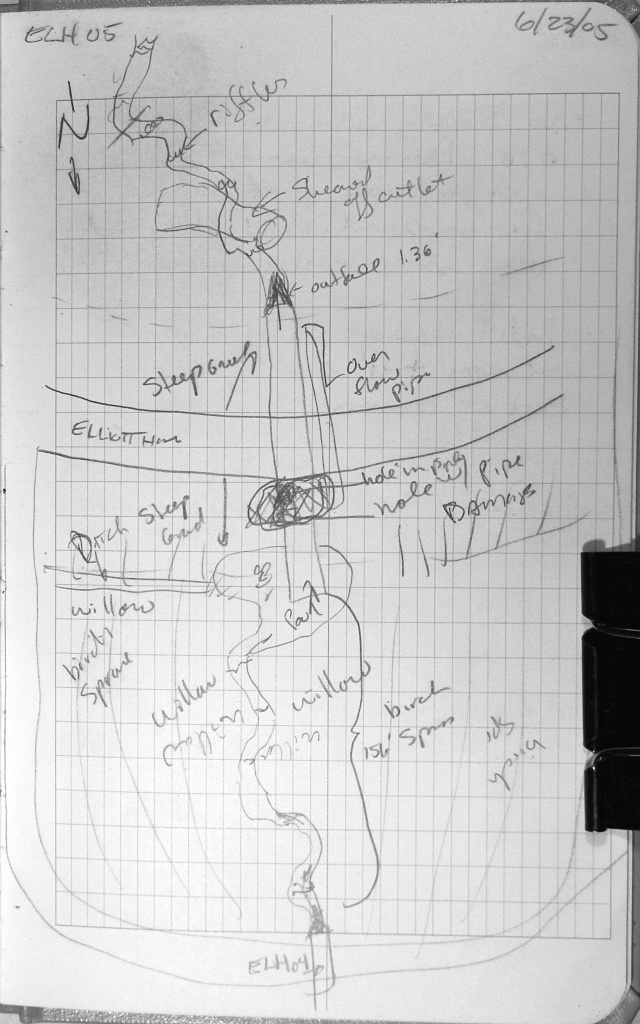 ELH 05
6/23/05
N
riffles
Sheared
off outlet
outfall 1.36'
Steep Grade
Over
flow
pipe
ELLIOTT HWY
hole in pipe
hole w/ pipe
Damage
Ditch
Steep
Grad
willow
birch
Spruce
Pool
willow
willow
willow
willow
birch
156' Spruce
birch
Spr
ELH04